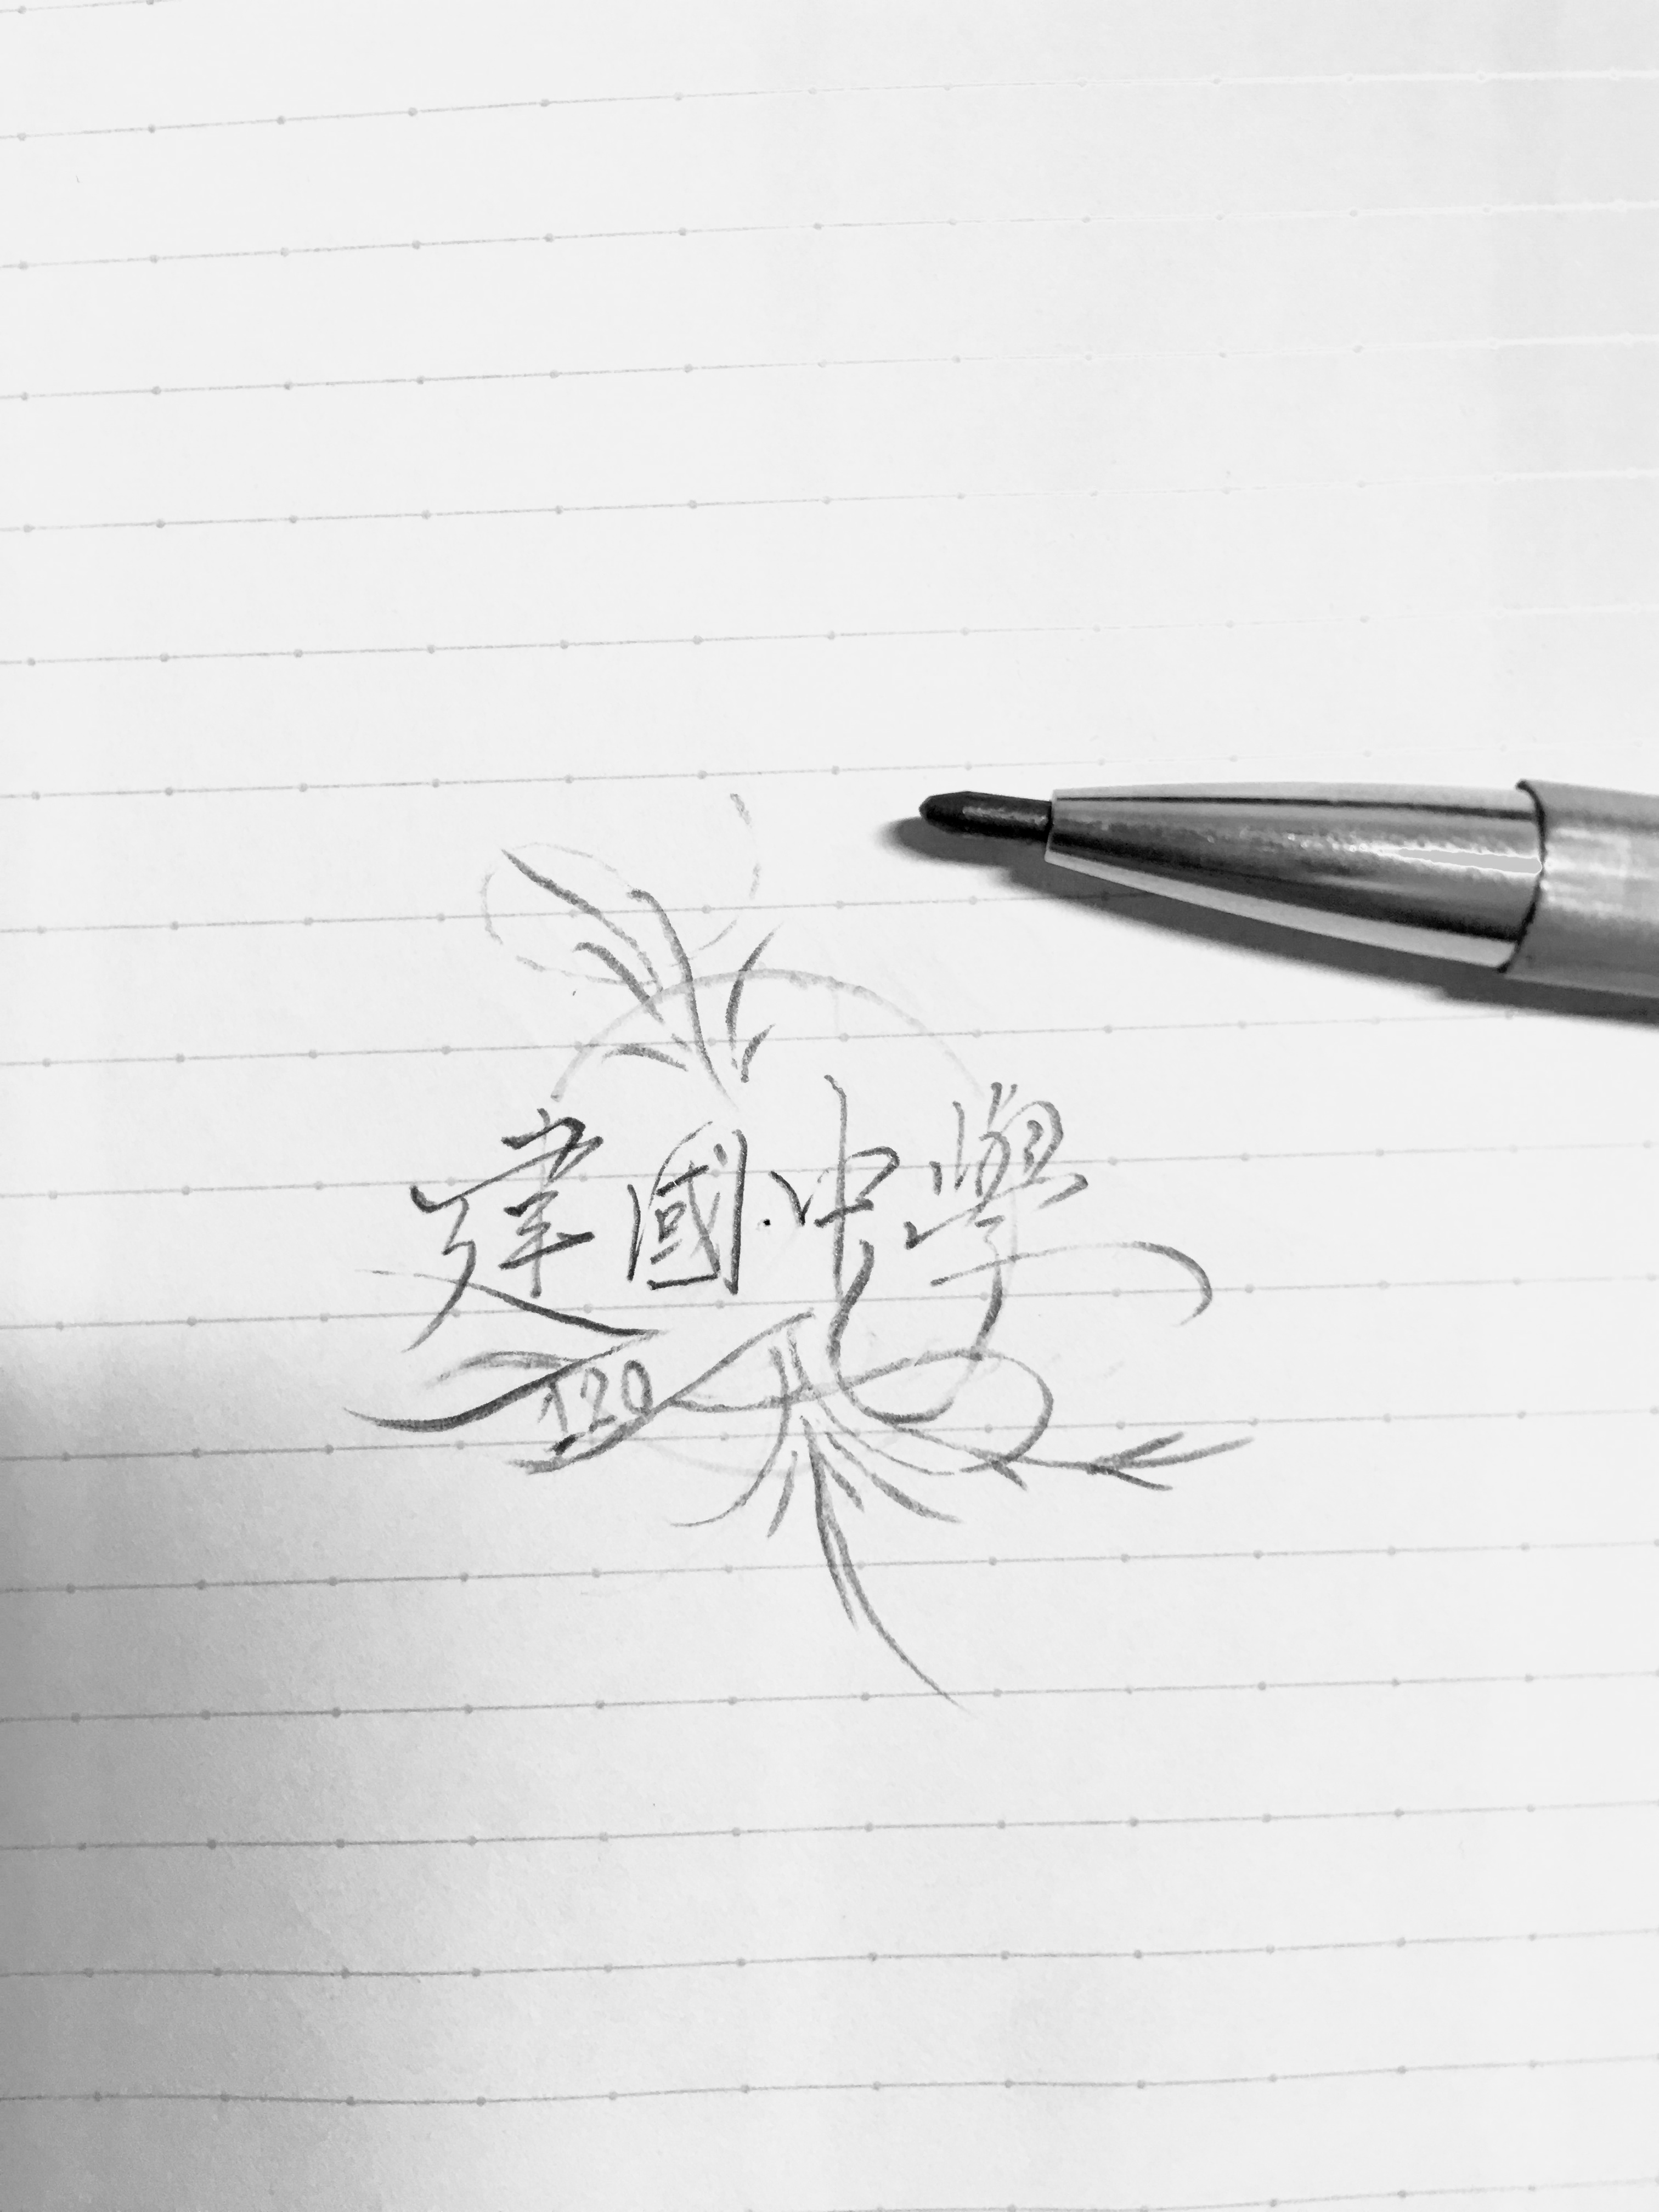 建國中學
120